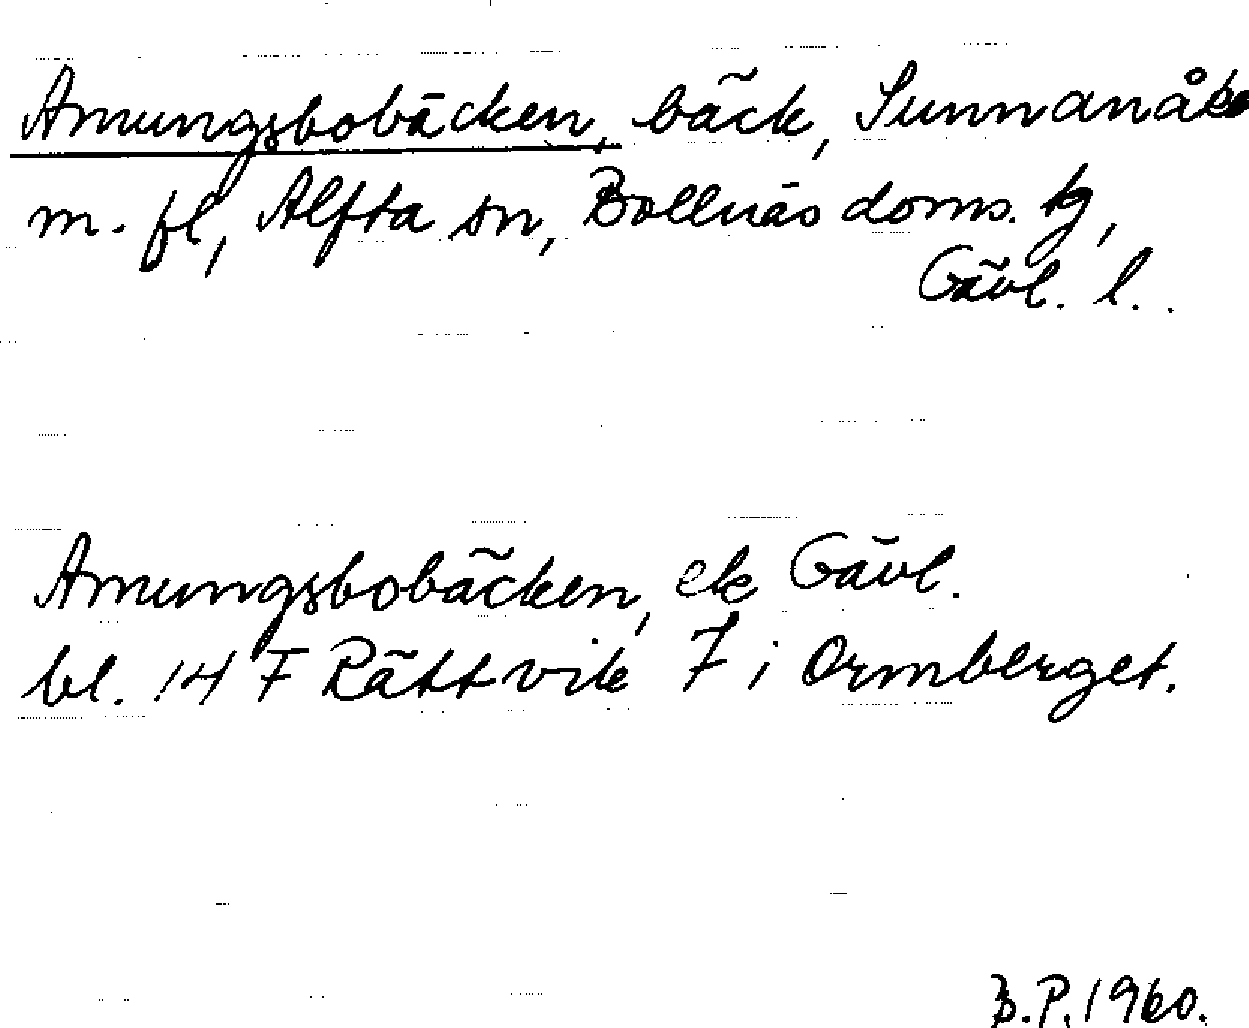 Amungsbobäcken, bäck, Sunnanåker
m. fl, Alfta sn, Bollnäs doms. tg,
Gävl. l..
Amungsbobäcken, ek Gävl.
bl. 14 F Rättvik 7 i Ormberget.
B.P. 1960.